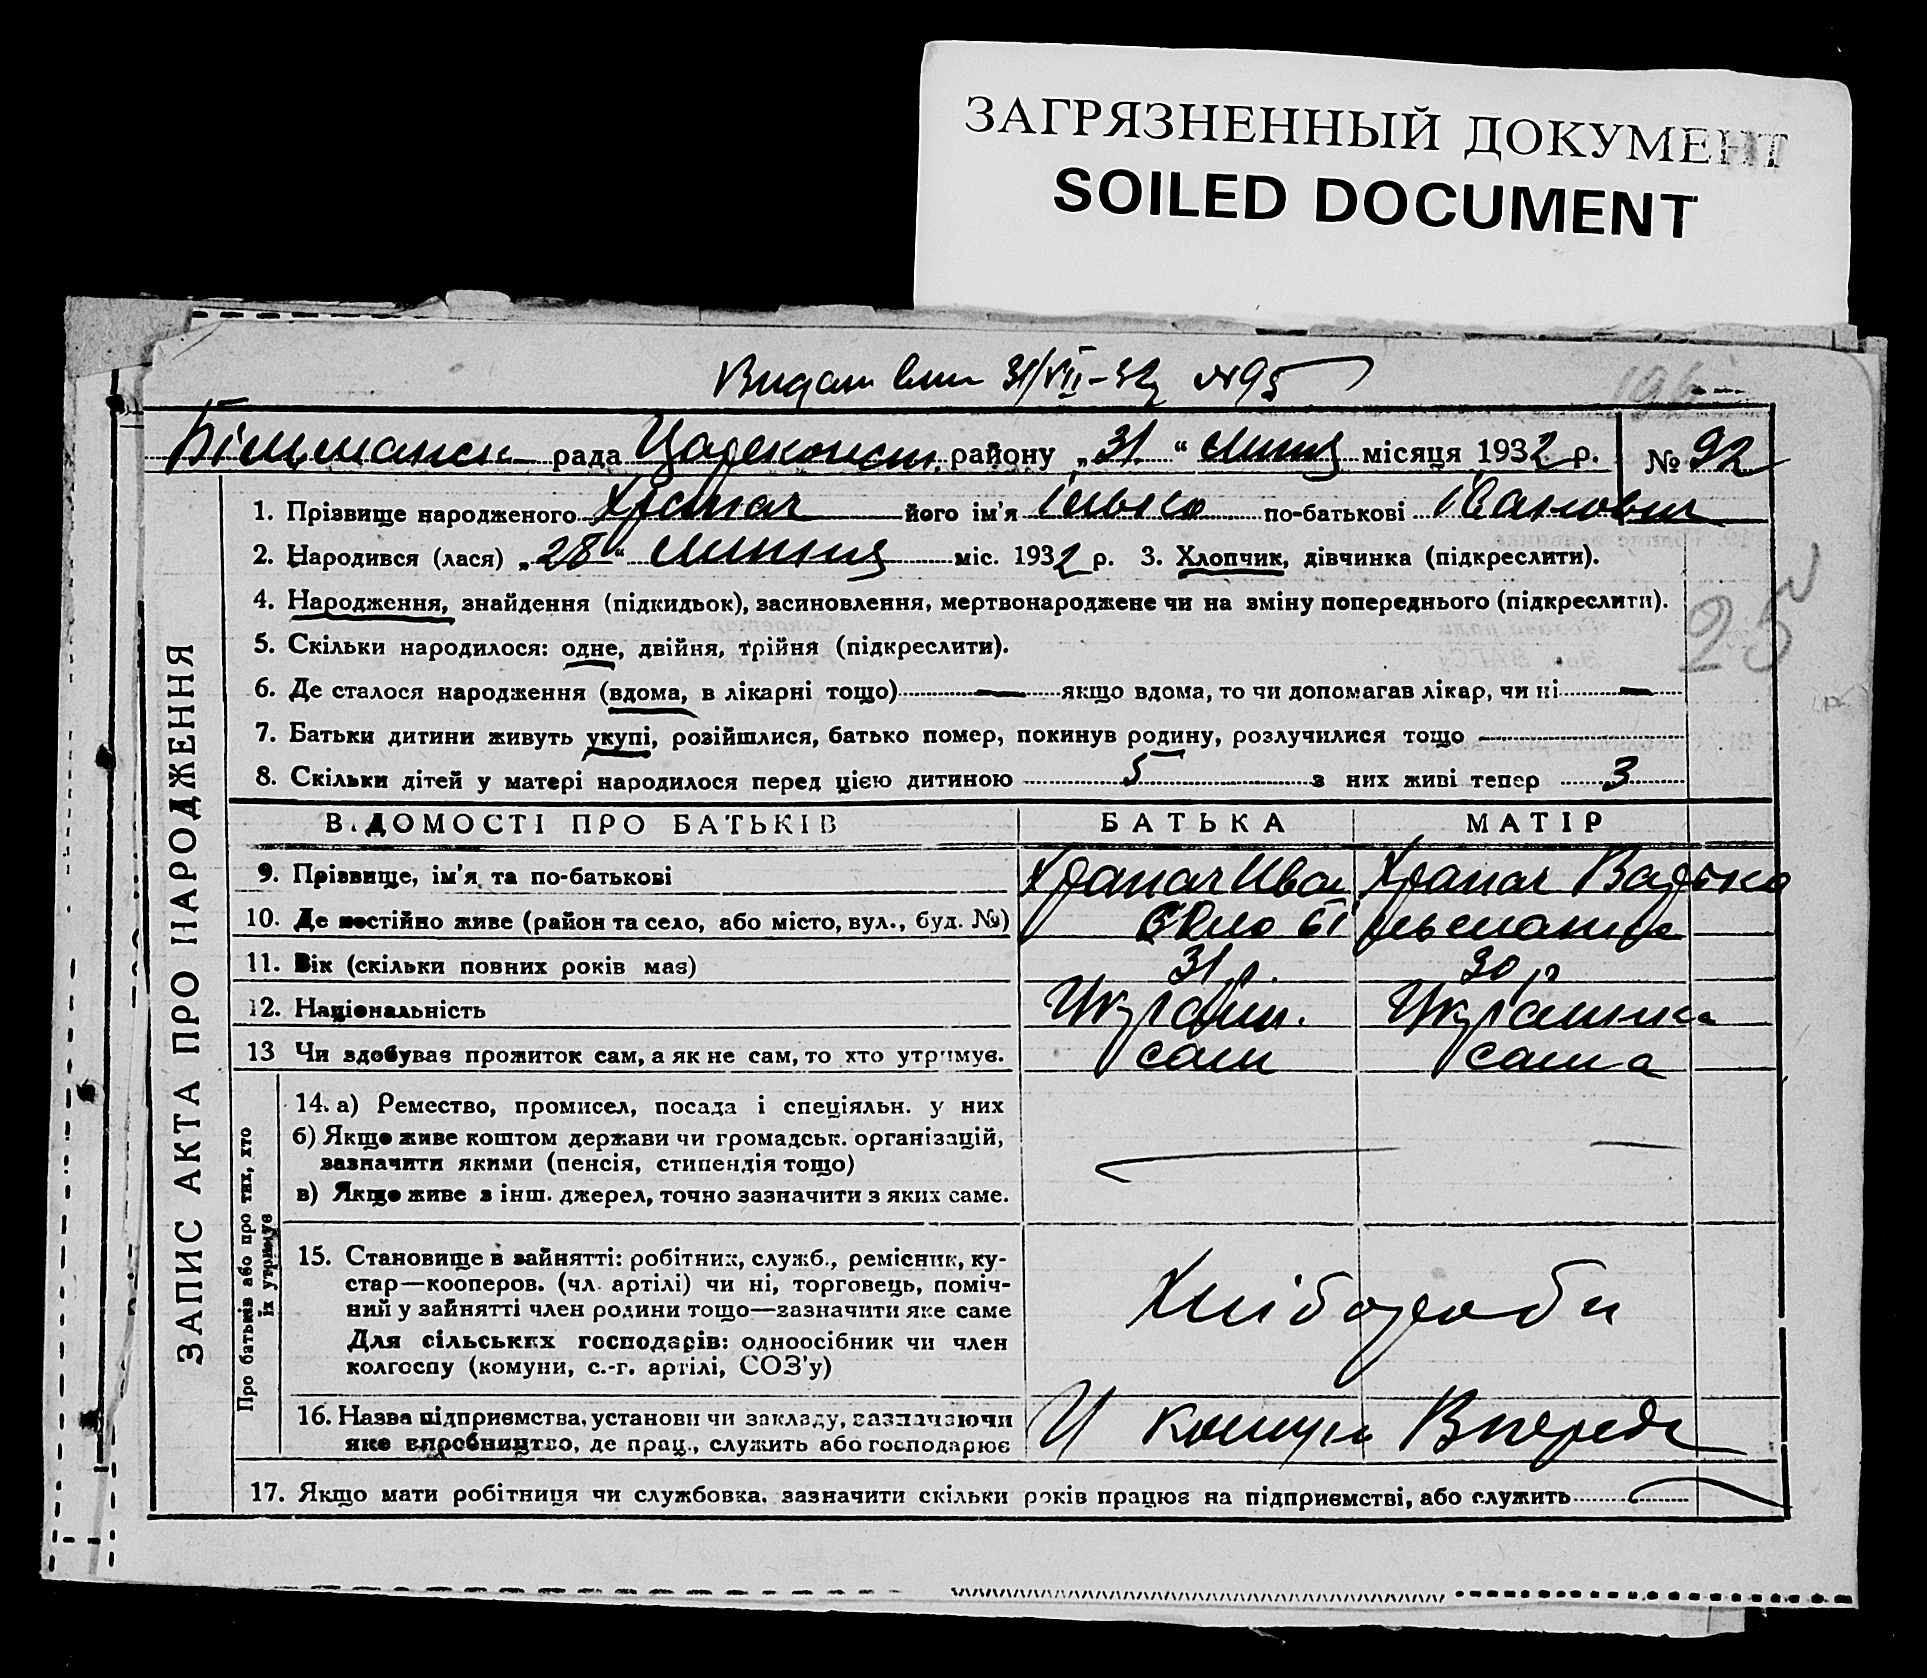 ЗАГРЯЗНЕННЫЙ ДОКУМЕНТ
SOILED DOCUMENT
31/VII-32 №95
рада Царекопст. району „31“ липця місяця 1932 р. № 92
ЗАПИС АКТА ПРО НАРОДЖЕННЯ
1. Прізвище народженого Храпач його ім'я Ілько по-батькові Іванович
2. Народився (лася) „28“ липня міс. 1932 р. 3. Хлопчик, дівчинка (підкреслити).
4. Народження, знайдення (підкидьок), засиновлення, мертвонароджене чи на зміну попереднього (підкреслити).
25
5. Скільки народилося: одне, двійня, трійня (підкреслити).
6. Де сталося народження (вдома, в лікарні тощо) — якщо вдома, то чи допомагав лікар, чи ні —
7. Батьки дитини живуть укупі, розійшлися, батько помер, покинув родину, розлучилися тощо
8. Скільки дітей у матері народилося перед цією дитиною 5 з них живі тепер 3
ВІДОМОСТІ ПРО БАТЬКІВ БАТЬКА МАТІР
9. Прізвище, ім'я та по-батькові Храпач Иван Храпач
10. Де постійно живе (район та село, або місто, вул., буд. №) Село
11. Вік (скільки повних років має) 31 р. 30 р
12. Національність Украін. Украінка
13 Чи здобуває прожиток сам, а як не сам, то хто утримує. сам сама
Про батьків або про тих, хто
їх утримує
14. а) Ремество, промисел, посада і спеціяльн. у них
б) Якщо живе коштом держави чи громадськ. організацій,
зазначити якими (пенсія, стипендія тощо)
в) Якщо живе з інш. джерел, точно зазначити з яких саме.
15. Становище в зайнятті: робітник, служб., ремісник, ку-
стар—кооперов. (чл. артілі) чи ні, торговець, поміч-
ний у зайнятті член родини тощо—зазначити яке саме
Для сільських господарів: одноосібник чи член
колгоспу (комуни, с.-г. артілі, СОЗ'у)
Хлібороби
16. Назва підприємства, установи чи закладу, зазначаючи
яке виробництво, де прац., служить або господарює
У комуні Вперед
17. Якщо мати робітниця чи службовка, зазначити скільки років працює на підприємстві, або служить